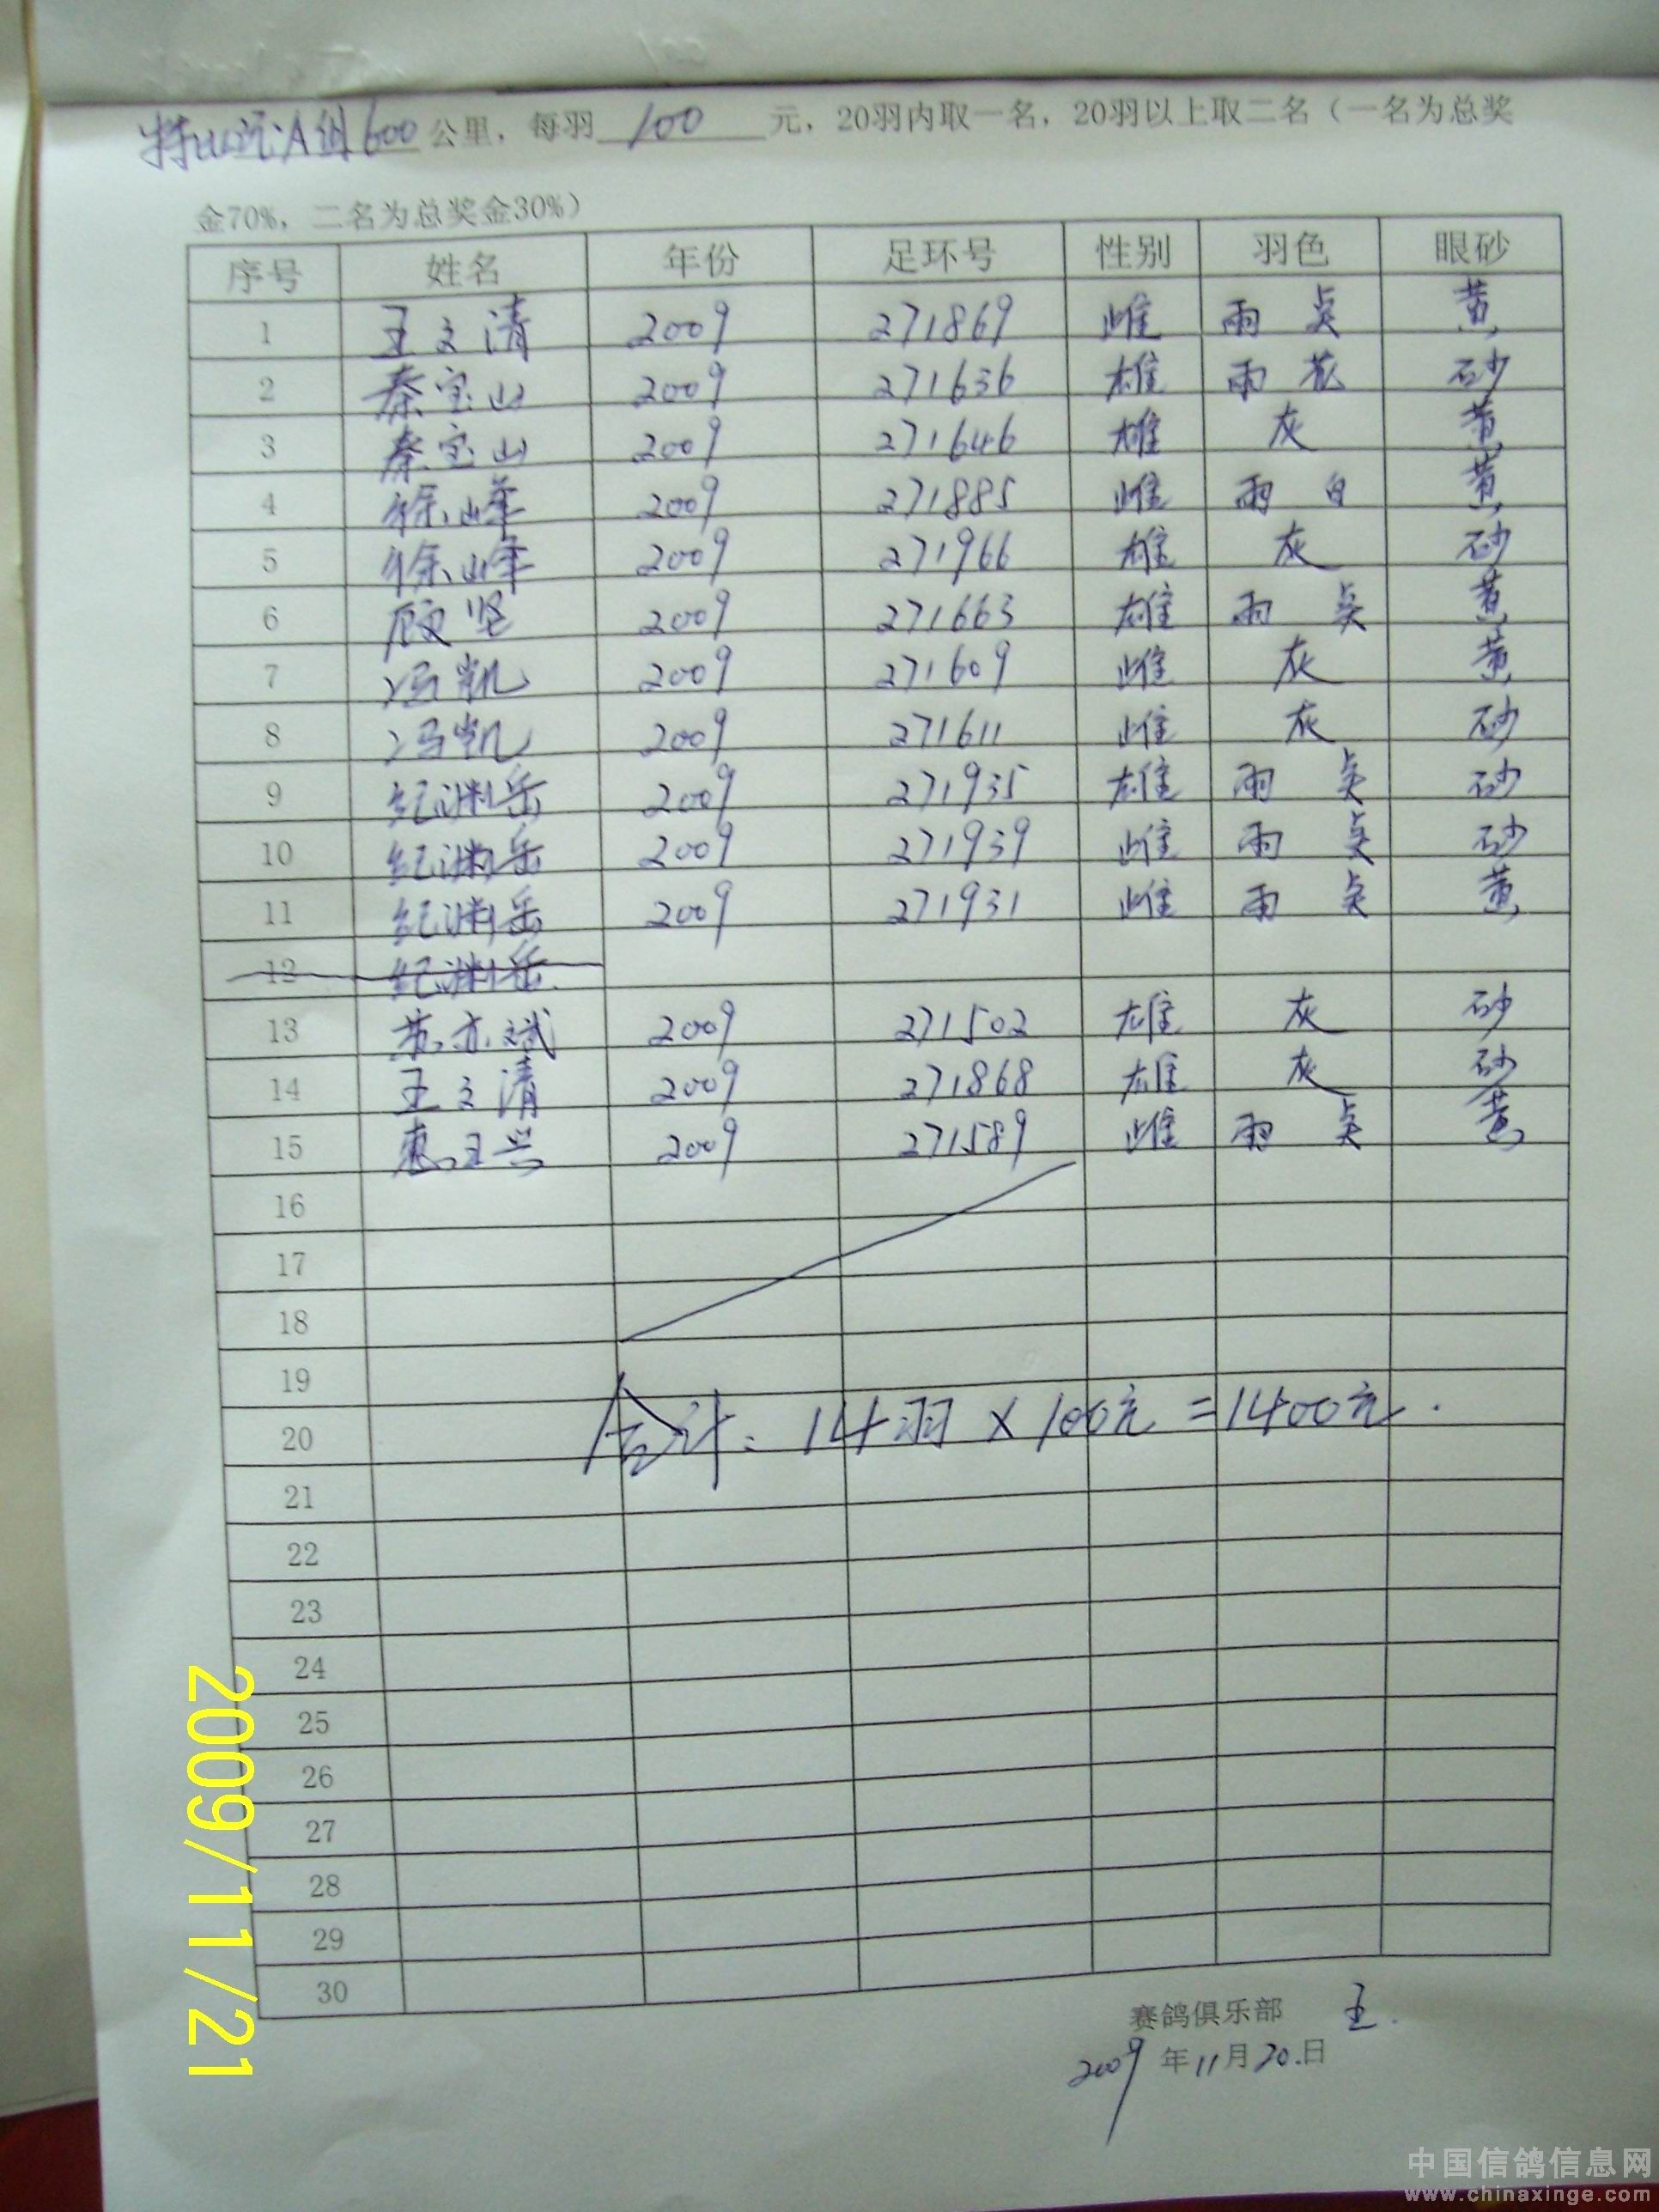 A组600公里，每羽100元，20羽内取一名，20羽以上取二名（一名为总奖
金70%，二名为总奖金30%）
序号 姓名 年份 足环号 性别 羽色 眼砂
1 王文清 2009 271869 雌 雨点 黄
2 秦宝山 2009 271636 雄 雨花 砂
3 秦宝山 2009 271646 雄 灰 黄
4 徐山峰 2009 271885 雌 雨白 黄
5 徐山峰 2009 271966 雄 灰 砂
6 顾坚 2009 271663 雄 雨点 黄
7 冯凯 2009 271609 雌 灰 黄
8 冯凯 2009 271611 雌 灰 砂
9 纪渊岳 2009 271935 雄 雨点 砂
10 纪渊岳 2009 271939 雌 雨点 砂
11 纪渊岳 2009 271931 雌 雨点 黄
12 纪渊岳
13 苏亦斌 2009 271502 雄 灰 砂
14 王文清 2009 271868 雄 灰 砂
15 惠卫兴 2009 271589 雌 雨点 黄
16
17
18
19
20
合计：14羽×100元=1400元.
21
22
23
24
25
26
27
28
29
30
赛鸽俱乐部 王.
2009年11月20.日
2009/11/21
中国信鸽信息网
www.chinaxinge.com